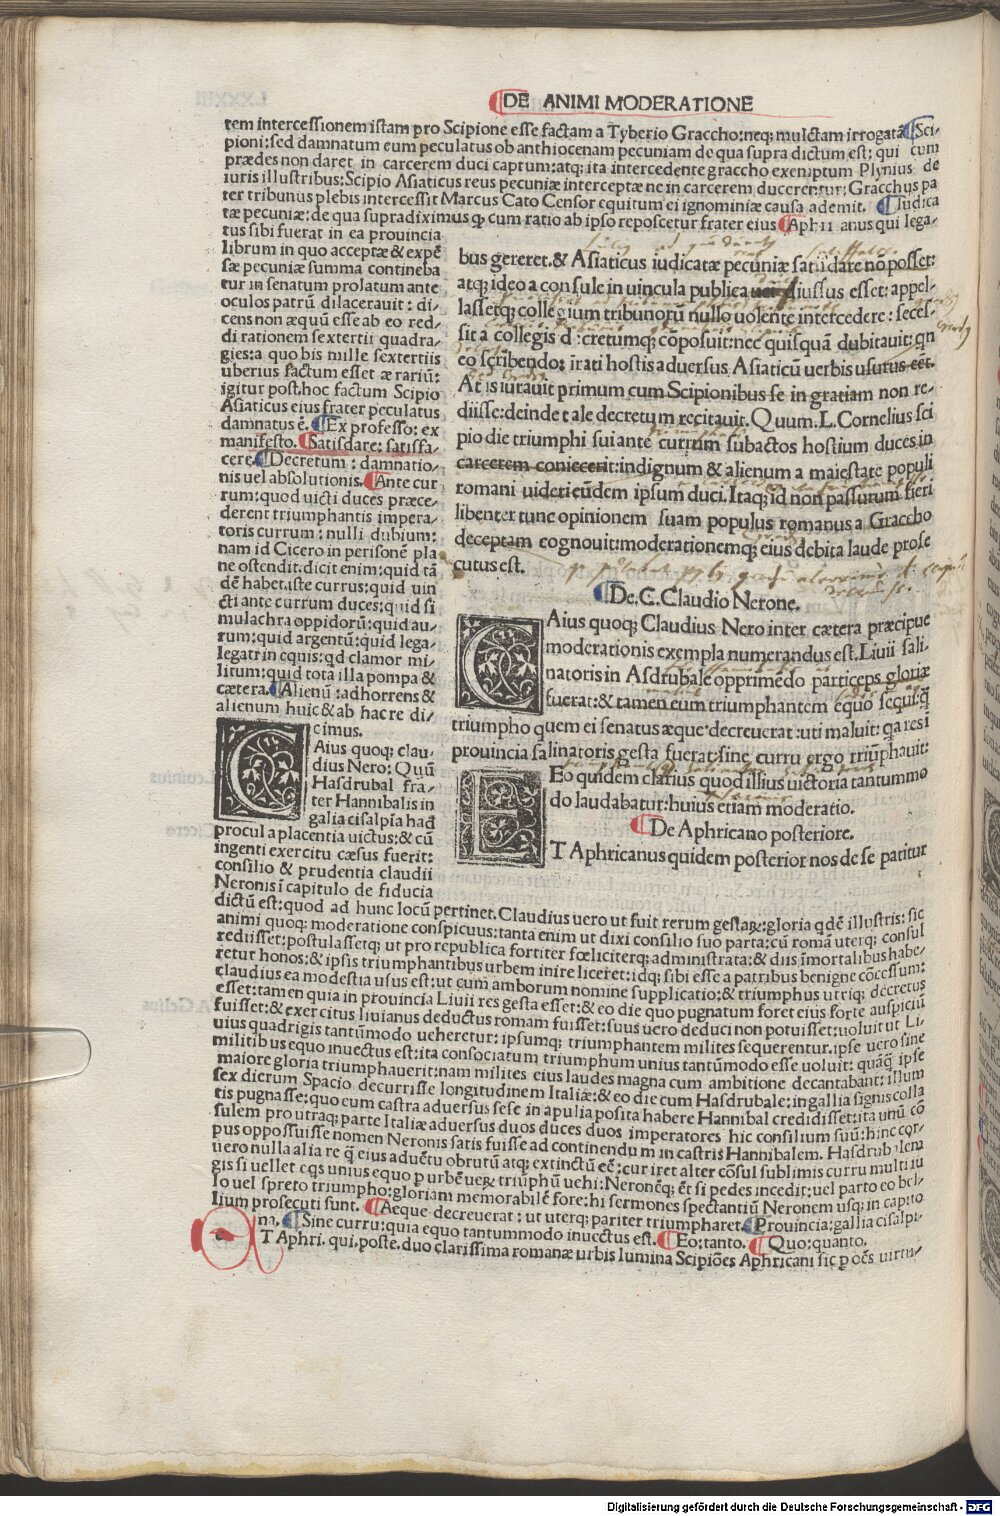 DE ANIMI MODERATIONE
tem intercessionem istam pro Scipione esse factam a Tyberio Graccho:neq; mulctam irrogatã Sci-
pioni:sed damnatum eum peculatus ob anthiocenam pecuniam de qua supra dictum est: qui cum
prædes non daret in carcerem duci captum:atq; ita intercedente graccho exemptum Plynius de
iuris illustribus:Scipio Asiaticus reus pecuniæ interceptæ ne in carcerem ducerentur: Gracchus pa
ter tribunus plebis intercessit Marcus Cato Censor equitum ei ignominiæ causa ademit. Iudica
tæ pecuniæ: de qua supradiximus
cum ratio ab ipso reposcetur frater eius Aphri anus qui lega-
tus sibi fuerat in ea prouincia
librum in quo acceptæ & expẽ
sæ pecuniæ summa contineba
tur in senatum prolatum ante
oculos patrũ dilacerauit: di-
cens non æquũ esse ab eo red-
di rationem sextertii quadra-
gies: a quo bis mille sextertiis
uberius factum esset ærariũ:
igitur post hoc factum Scipio
Asiaticus eius frater peculatus
damnatus ẽ. Ex professo: ex
manifesto. Satisdare: satisfa-
cere Decretum: damnatio-
nis uel absolutionis. Ante cur
rum: quod uicti duces præce-
derent triumphantis impera-
toris currum: nulli dubium:
nam id Cicero in perisonẽ pla
ne ostendit. dicit enim: quid tã
dẽ habet iste currus: quid uin
cti ante currum duces: quid si
mulachra oppidorũ: quid au-
rum: quid argentũ: quid lega-
legatr in equis: qd clamor mi-
litum: quid tota illa pompa &
cætera. Alienũ: adhorrens &
alienum huic & ab hac re di-
cimus.
bus gereret. & Asiaticus iudicatæ pecuniæ satis dare nõ posset:
atq; ideo a consule in uincula publica
iussus esset: appel-
lassetq; collegium tribunorũ nullo uolente intercedere: seces-
sit a collegis d : cretumq; cõposuit: nec quisquã dubitauit: qn
eo scribendo: irati hostis aduersus Asiaticũ uerbis usurus eẽt.
At is iurauit primum cum Scipionibus se in gratiam non re-
diisse: deinde tale decretum recitauit. Quum. L. Cornelius sci
pio die triumphi sui ante currum subactos hostium duces in
carcerem coniecerit: indignum & alienum a maiestate populi
romani uideri eũdem ipsum duci. Itaq; id non passurum fieri
libenter tunc opinionem suam populus romanus a Graccho
deceptam cognouit: moderationemq; eius debita laude prose
cutus est.
De. C. Claudio Nerone.
CAius quoq; Claudius Nero inter cætera præcipue
moderationis exempla numerandus est. Liuii sali-
natoris in Asdrubale opprimẽdo particeps gloriæ
fuerat: & tamen eum triumphantem equo
triumpho quem ei senatus æque decreuerat: uti maluit: qa res ĩ
prouincia salinatoris gesta fuerat: sine curru ergo triũphauit:
Eo quidem clarius quod illius uictoria tantummo
do laudabatur: huius etiam moderatio.
De Aphricano posteriore.
ET Aphricanus quidem posterior nos de se patitur
CAius quoq; clau-
dius Nero: Quũ
Hasdrubal fra-
ter Hannibalis in
galia cisalpĩa haď
procul a placentia uictus: & cũ
ingenti exercitu cæsus fuerit:
consilio & prudentia claudii
Neronis ĩ capitulo de fiducia
dictũ est: quod ad hunc locũ pertinet. Claudius uero ut fuit rerum gestaꝝ: gloria qdẽ illustris: sic
animi quoq; moderatione conspicuus: tanta enim ut dixi consilio suo parta: cũ romã uterq; consul
rediisset: postulassetq; ut pro republica fortiter fœliciterq; administrata: & diis ĩmortalibus habe-
retur honos: & ipsis triumphantibus urbem inire liceret: idq; sibi esse a patribus benigne cõcessum:
claudius ea modestia usus est: ut cum amborum nomine supplicatio: & triumphus utriq; decretus
esset: tamen quia in prouincia Liuii res gesta esset: & eo die quo pugnatum foret eius forte auspiciũ
fuisset: & exercitus liuianus deductus romam fuisset: suus uero deduci non potuisset: uoluit ut Li-
uius quadrigis tantũmodo ueheretur: ipsumq; triumphantem milites sequerentur. ipse uero sine
militibus equo inuectus est: ita consociatum triumphum unius tantũmodo esse uoluit: quãq̃ ipse
maiore gloria triumphauerit: nam milites eius laudes magna cum ambitione decantabant: illum
sex dierum Spacio decurrisse longitudinem Italiæ: & eo die cum Hasdrubale: in gallia signis colla
tis pugnasse: quo cum castra aduersus sese in apulia posita habere Hannibal credidisset: ita unũ cõ
sulem pro utraq; parte Italiæ aduersus duos duces duos imperatores hic consilium suũ: hinc cor-
pus oppossuisse nomen Neronis satis fuisse ad continendum in castris Hannibalem. Hasdrubalem
uero nulla alia re q̃ eius aduẽtu obrutũ atq; extinctũ eẽ: cur iret alter cõsul sublimis curru multi iu
gis si uellet eqs unius equo p urbẽ ueꝝ triũphũ uehi: Neronẽq; ẽt si pedes incedit: uel parto eo bel-
lo uel spreto triumpho: gloriam memorabilẽ fore: hi sermones spectantiũ Neronem usq; in capito
lium prosecuti sunt. Aeque decreuerat: ut uterq; pariter triumpharet. Prouincia: gallia cisalpi-
na. Sine curru: quia equo tantummodo inuectus est. Eo: tanto. Quo: quanto.
ET Aphri. qui, poste. duo clarissima romanæ urbis lumina Scipiões Aphricani sic p oẽs uirtu-
Digitalisierung gefördert durch die Deutsche Forschungsgemeinschaft - DFG